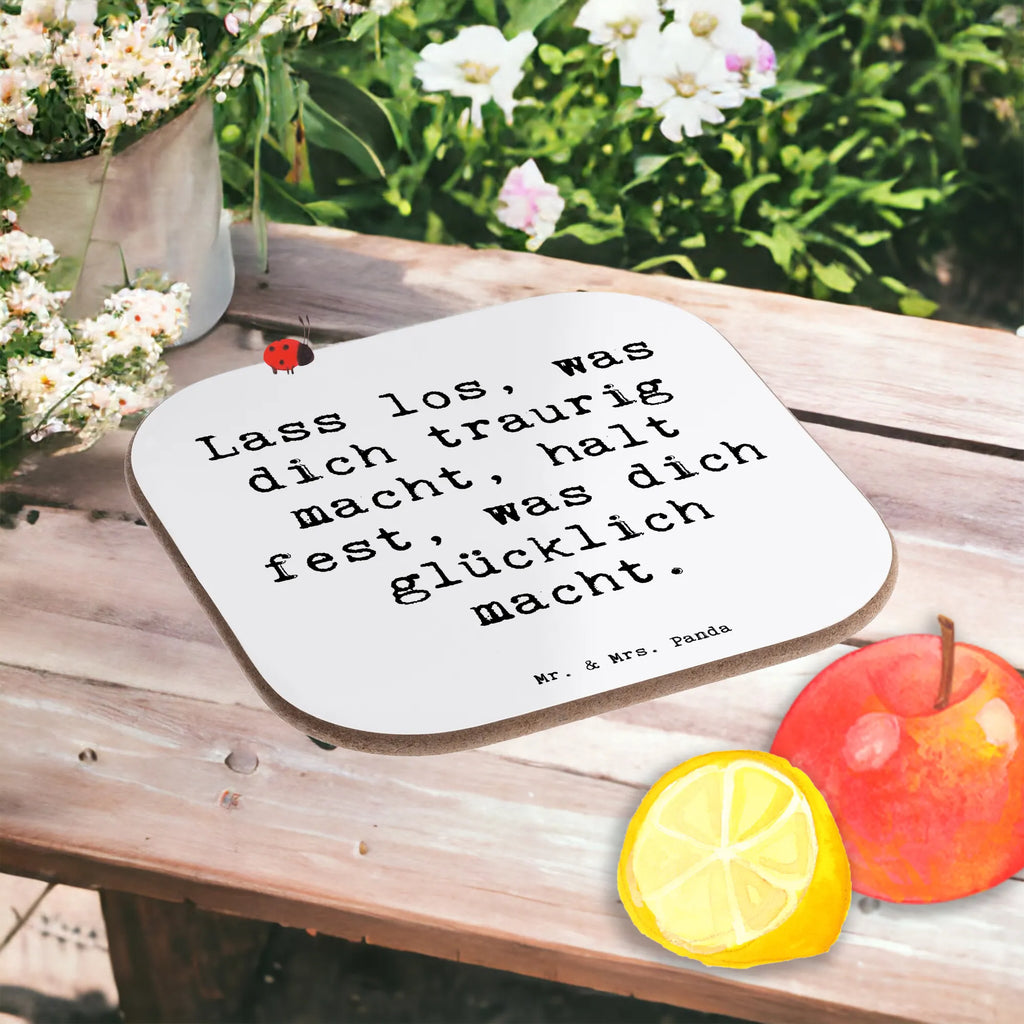 Lass los, was
dich traurig
macht, halt
fest, was dich
glücklich
macht.
Mr. & Mrs. Panda